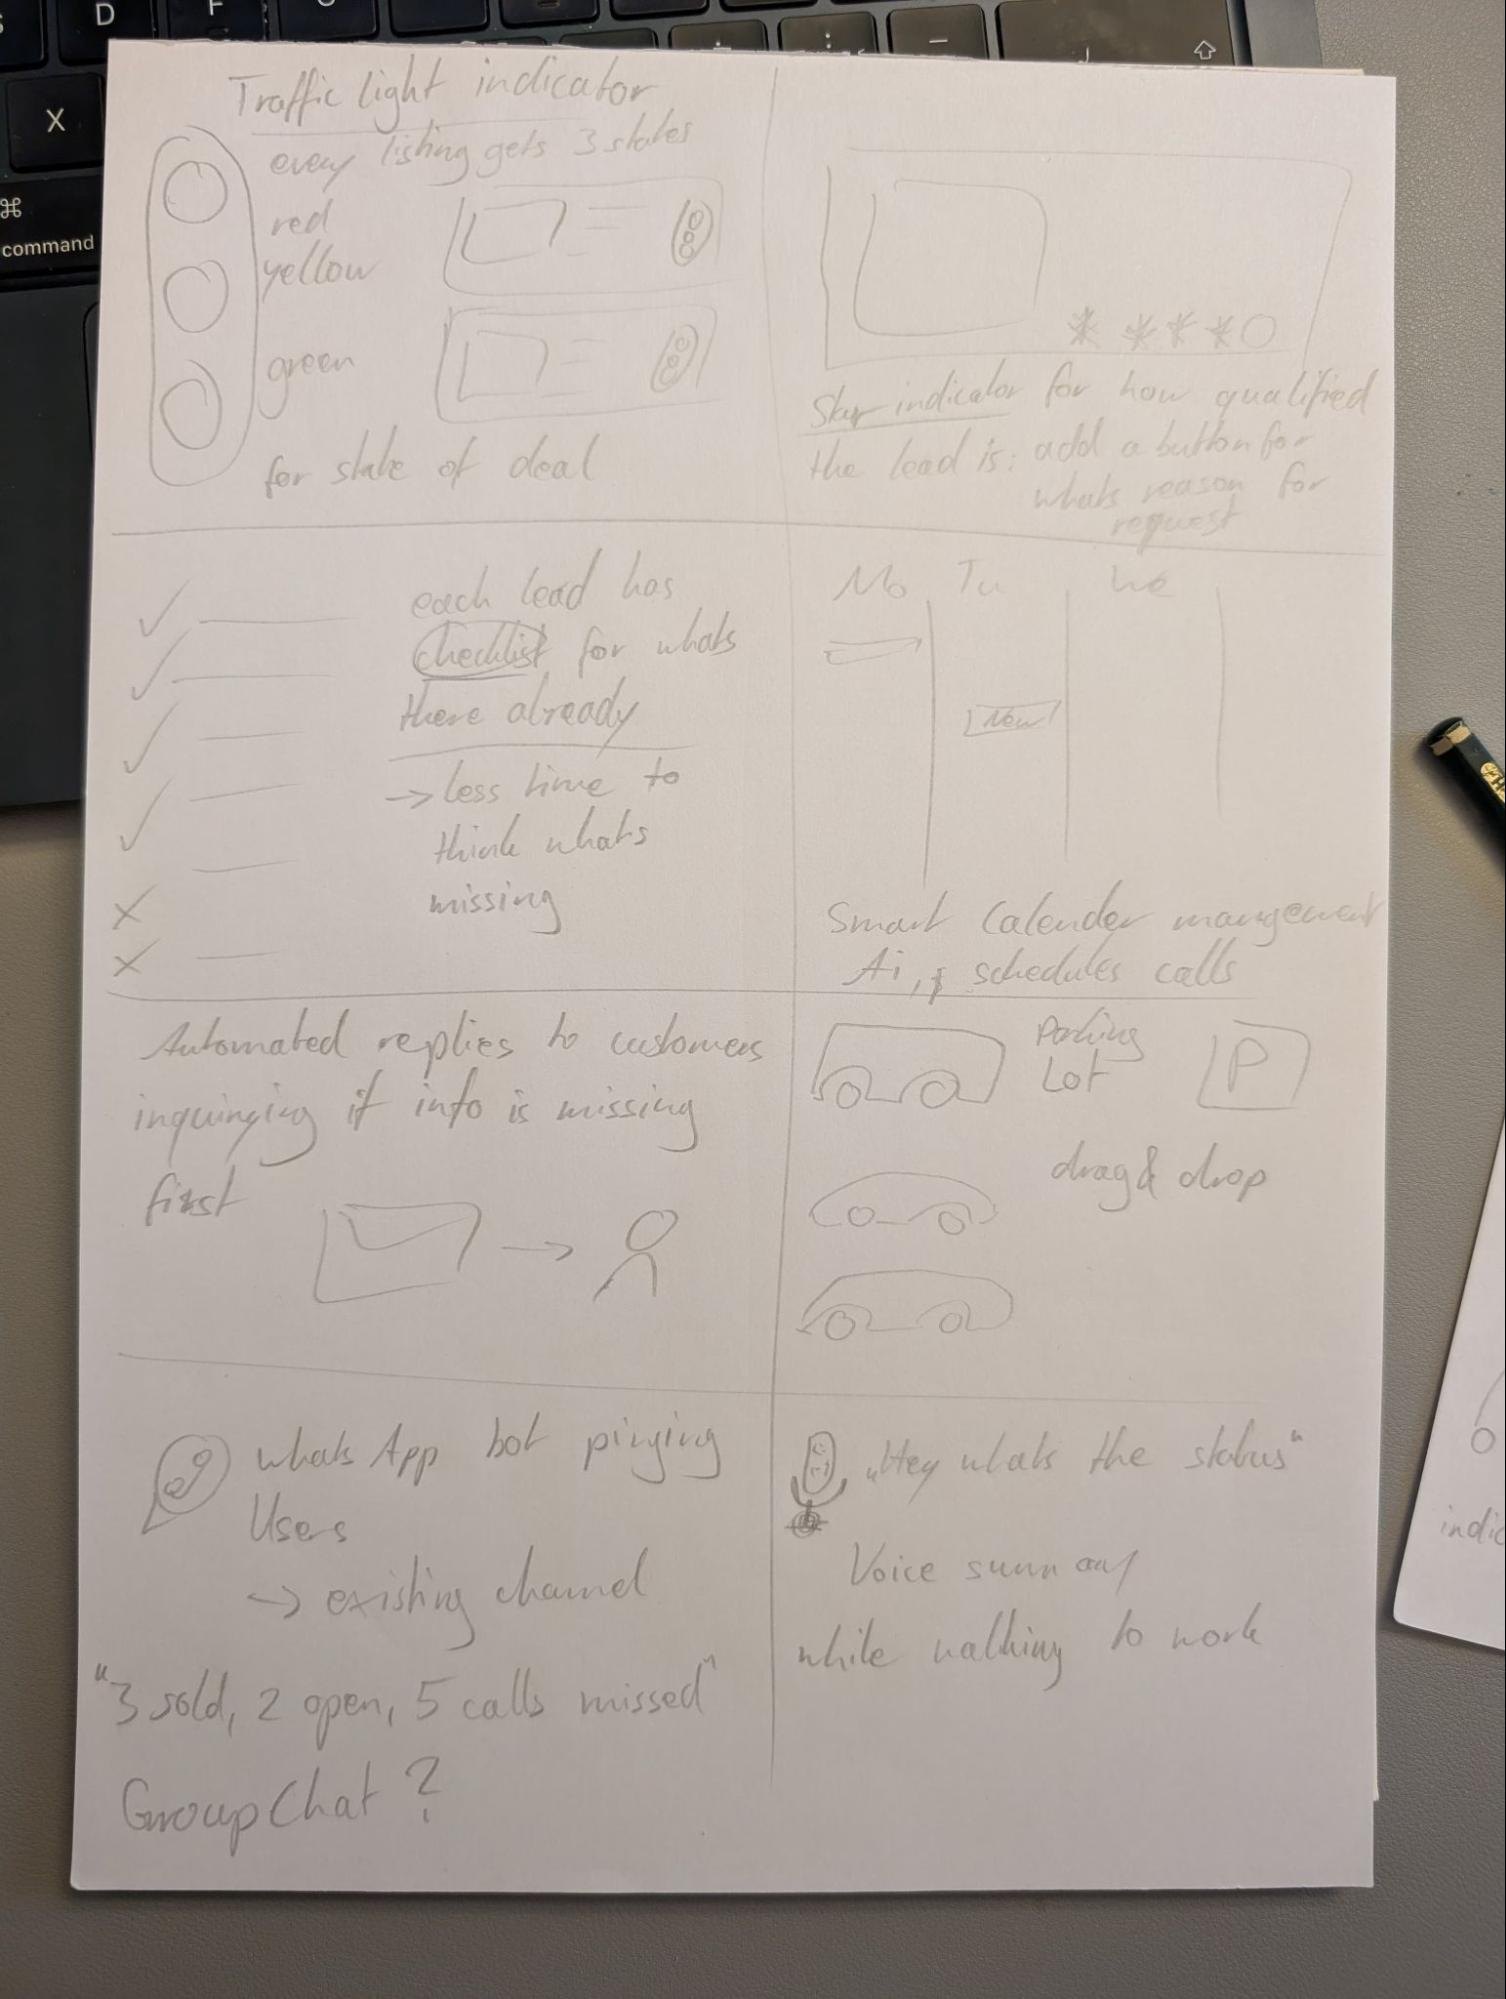 D
F
X
⌘
command
Traffic light indicator
every listing gets 3 states
red
yellow
green
for state of deal
Star indicator for how qualified
the lead is: add a button for
whats reason for
request
each lead has
checklist for whats
there already
→ less time to
think whats
missing
Mo Tu We
New
Smart Calender mangement
Ai, schedules calls
Automated replies to customers
inquirying if info is missing
first
Parking
Lot
P
drag & drop
WhatsApp bot pinging
Users
→ existing channel
"3 sold, 2 open, 5 calls missed"
GroupChat ?
„Hey whats the status"
Voice summary
while walking to work
indic